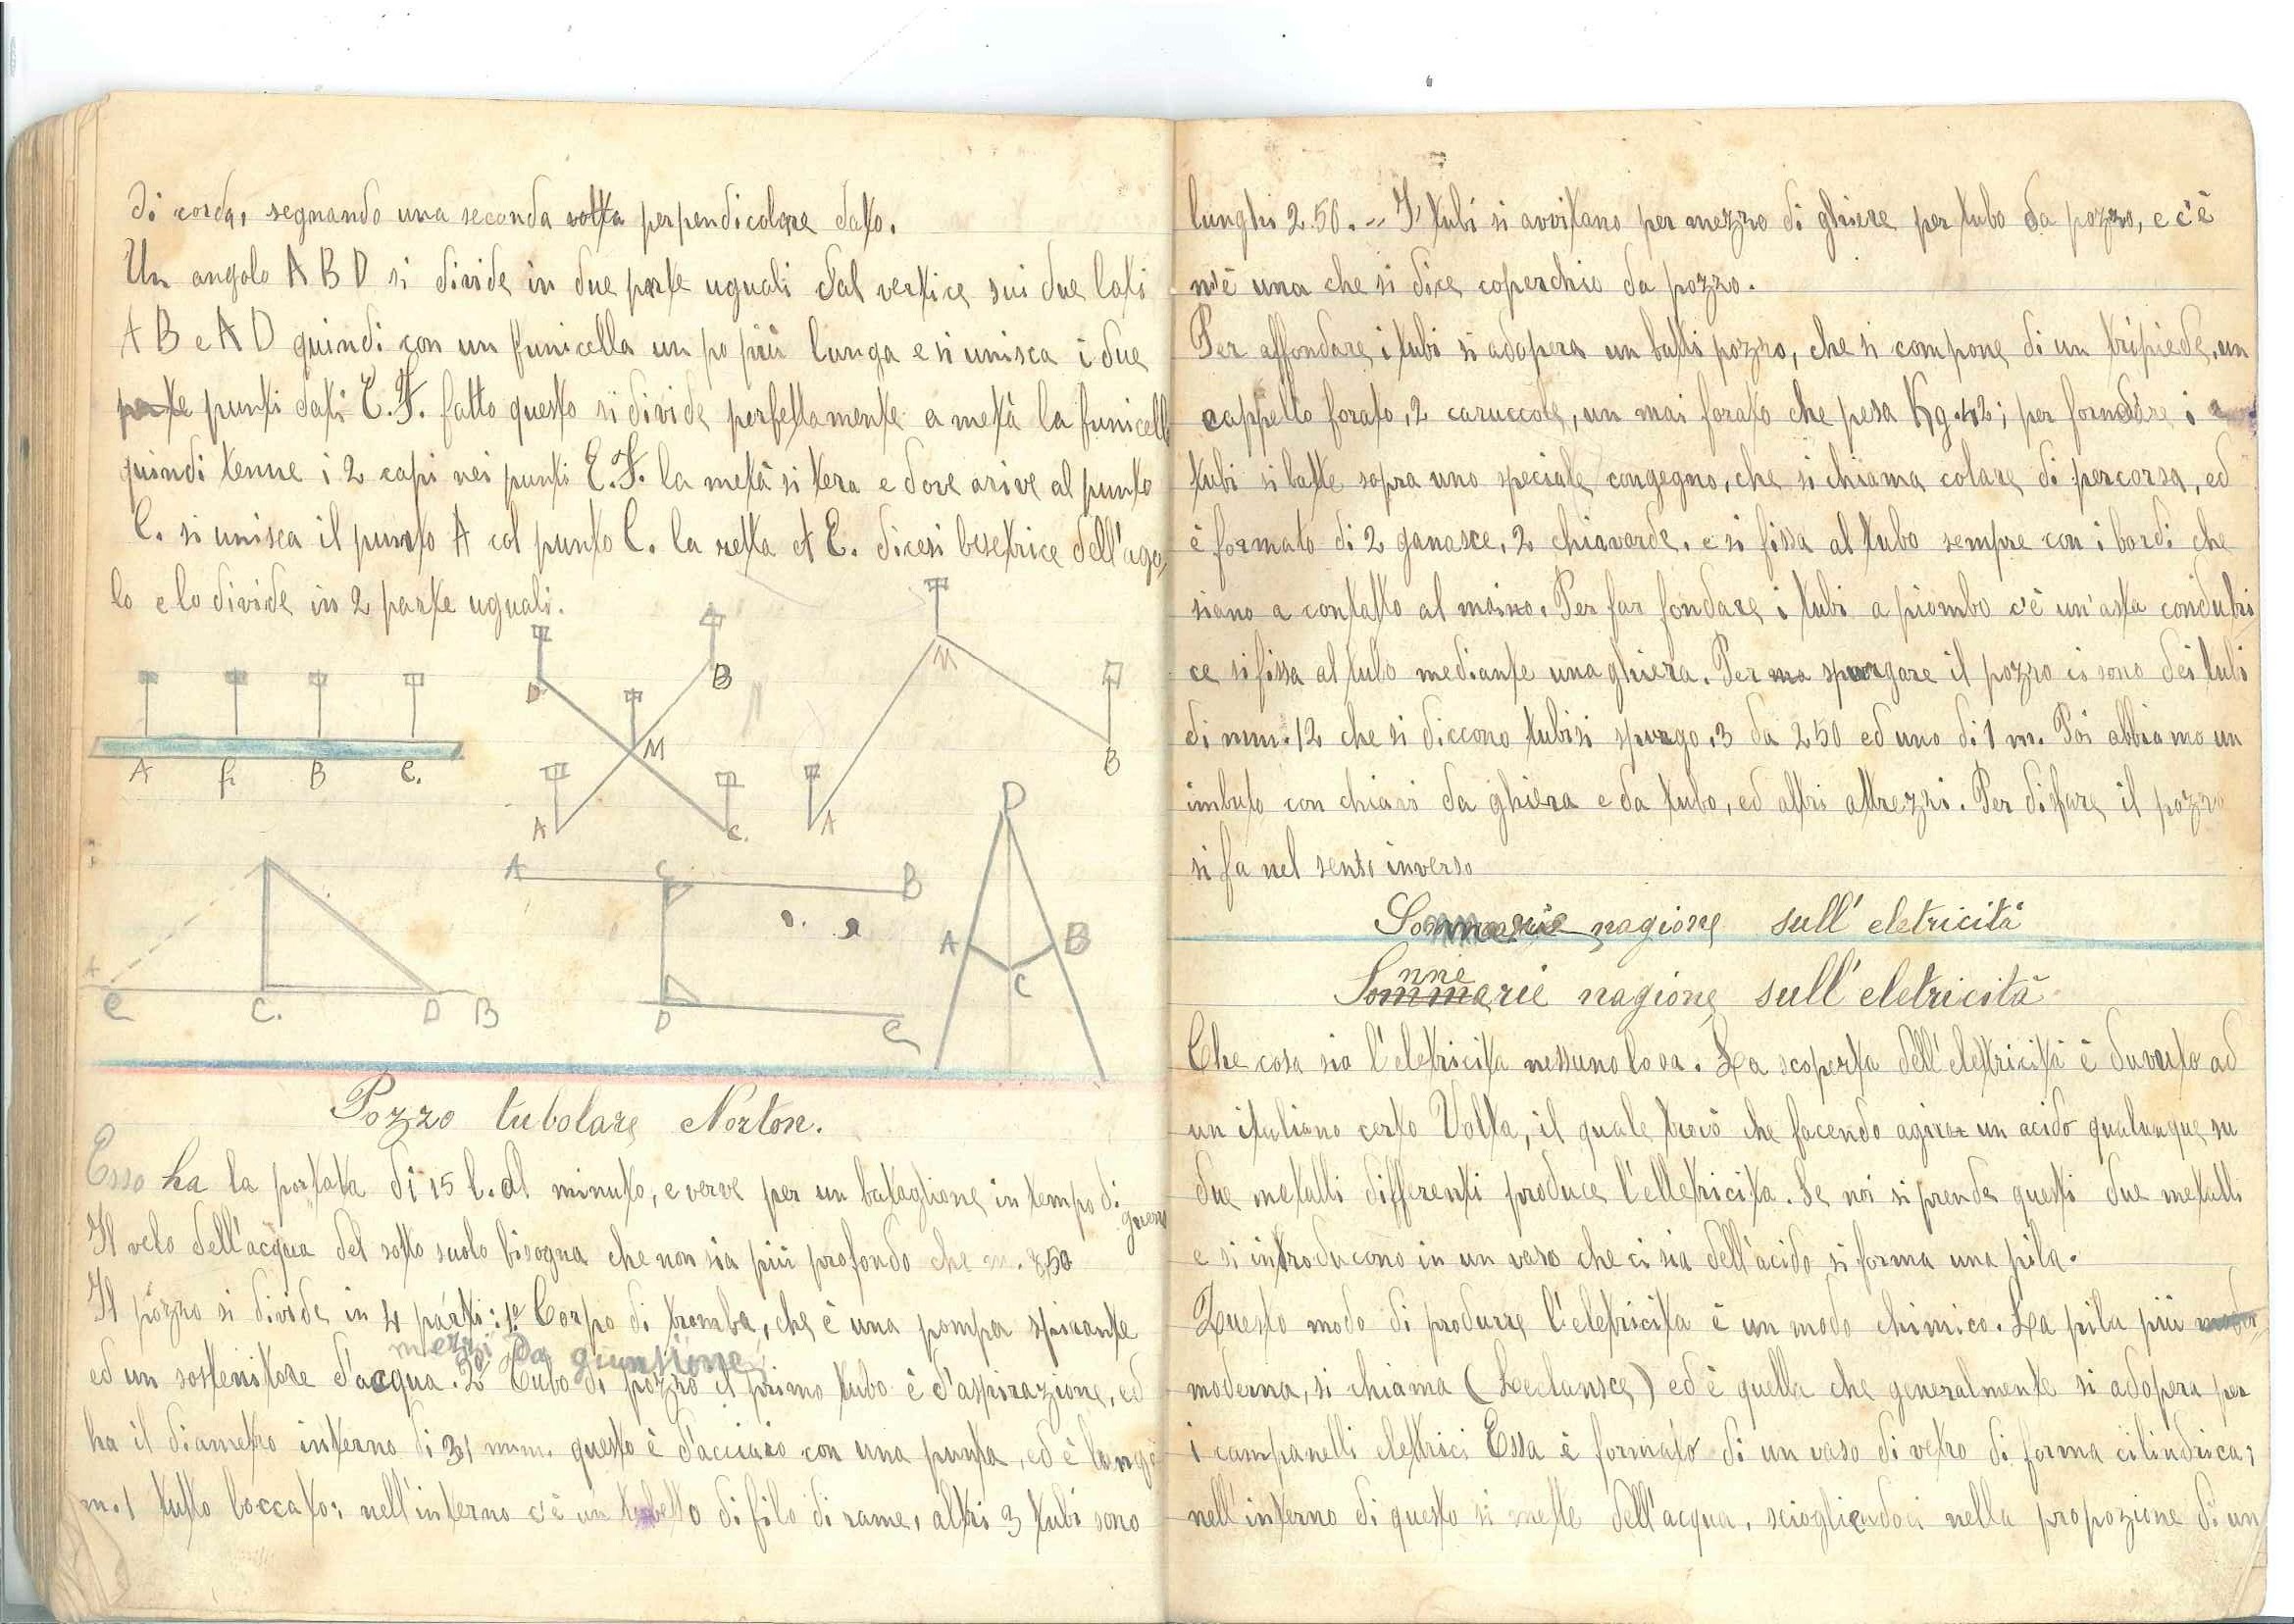 di corda, segnando una seconda volta perpendicolare dato.
Un angolo A B D si divide in due parte uguali dal vertice sui due lati
A B e A D quindi con un funicella un po più lunga e si unisca i due
parte punti dati E. F. fatto questo si divide perfettamente a metà la funicella
quindi tenne i 2 capi nei punti E. F. la metà si tera e dove arive al punto
C. si unisca il punto A col punto C. la retta A E. dicesi bisetrice dell'ago,
lo e lo divide in 2 parte uguali.
D B M
M
B
A B C.
A C. A
D
A C B
A B
C
A
C C. D B D C
Pozzo tubolare Norton.
Esso ha la portata di 15 l. al minuto, e verve per un bataglione in tempo di
guerra
Il velo dell'acqua del sotto suolo bisogna che non sia più profondo che m. 850
Il pozzo si divide in 4 parti: 1º Corpo di tromba, che è una pompa spirante
mezzi Da giunsione
ed un sostenitore d'acqua. 2º Tubo di pozzo il primo tubo è d'aspirazione, ed
ha il diametro interno di 31 mm. questo è d'acciaio con una punta, ed è lungo
m. 1 tutto boccato: nell'interno c'è un tubetto di filo di rame, altri 3 tubi sono
lunghi 2.50. - I tubi si avvitano per mezzo di ghiere per tubo da pozzo, e c'è
n'è una che si dice coperchio da pozzo.
Per affondare i tubi si adopera un batti pozzo, che si compone di un tripiede, un
cappello forato, 2 caruccole, un mai forato che pesa Kg. 42; per fondare i
tubi si batte sopra uno speciale congegno, che si chiama colare di percorsa, ed
è formato di 2 ganasce, 2 chiavarde, e si fissa al tubo sempre con i bordi che
siano a contatto al maino. Per far fondare i tubi a piombo c'è un'asta condutri
ce si fissa al tubo mediante una ghiera. Per ma spurgare il pozzo ci sono dei tubi
di mm. 12 che si diccono tubi si spurgo, 3 da 250 ed uno di 1 m. Poi abbiamo un
imbuto con chiavi da ghiera e da tubo, ed altri attrezzi. Per difare il pozzo
si fa nel senso inverso
Sommarie nagione sull'eletricità
nne
Sommarie nagione sull'eletricità
Che cosa sia l'eletricita nessuno lo sa. La scoperta dell'elettricità è duvuto ad
un italiano certo Volta, il quale trovò che facendo agire un acido qualunque su
due metalli differenti produce l'elletricita. Se noi si prende questi due metalli
e si introducono in un vaso che ci sia dell'acido si forma una pila.
Questo modo di produrre l'eletricita è un modo chimico. La pila più moder
moderna, si chiama (Leclansce) ed è quella che generalmente si adopera per
i campanelli elettrici Essa è formato di un vaso di vetro di forma cilindrica;
nell'interno di questo si mette dell'acqua, sciogliendoci nella propozione di un